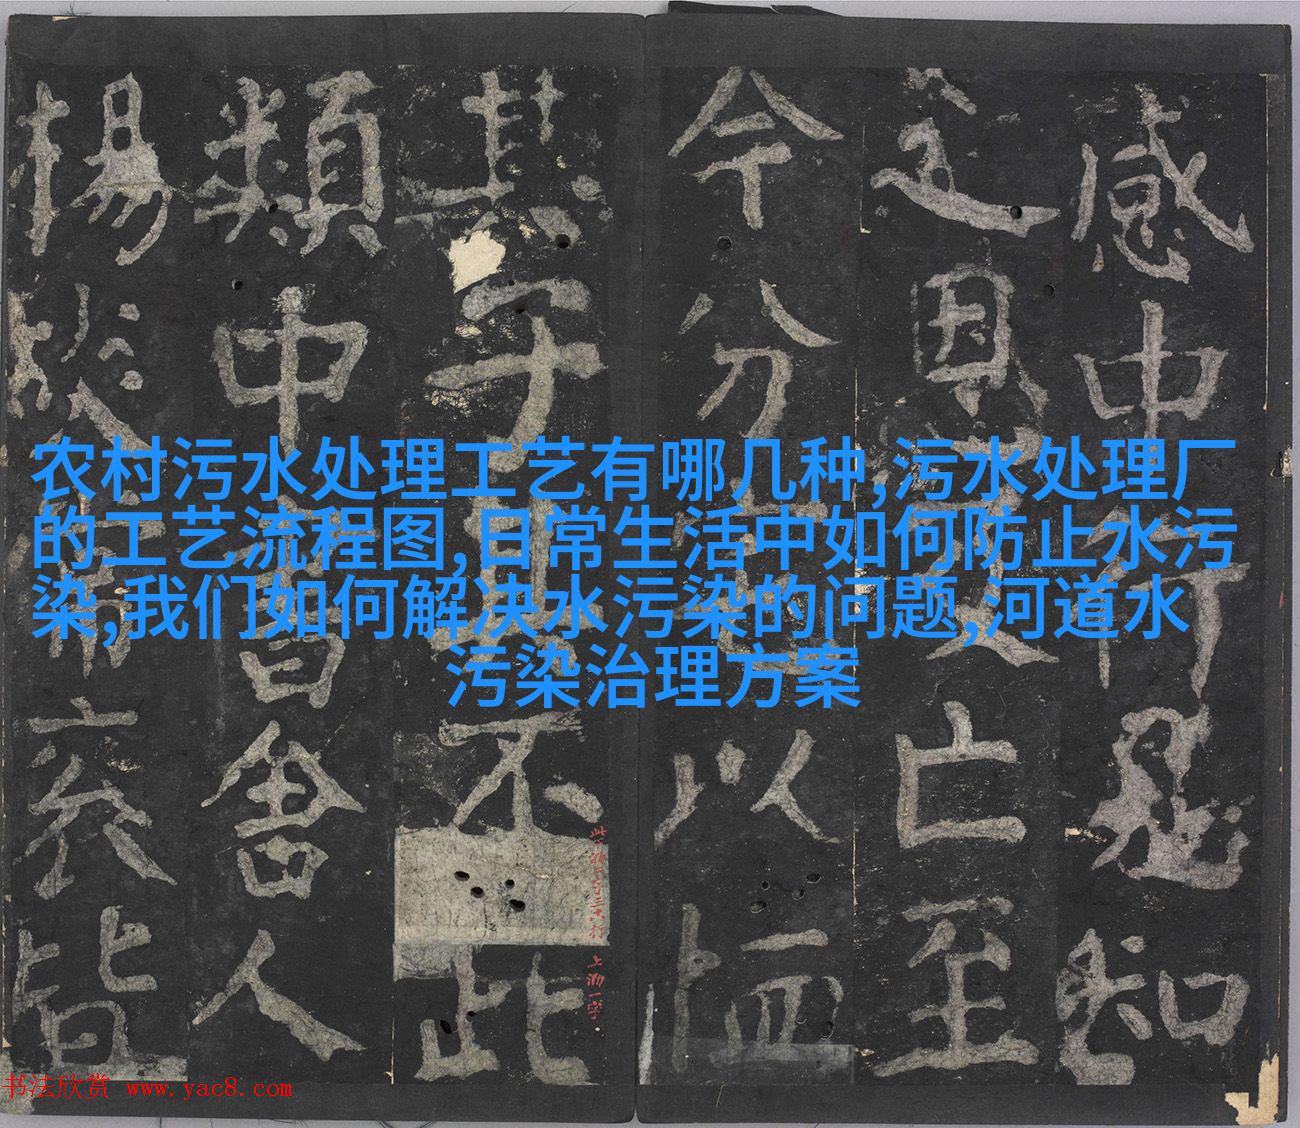 农村污水处理工艺有哪几种,污水处理厂
的工艺流程图,日常生活中如何防止水污
染,我们如何解决水污染的问题,河道水
污染治理方案
感中行知
恩亡至
今分以
其于不此
類中書舍人
楊皆
书法欣赏 www.yac8.com